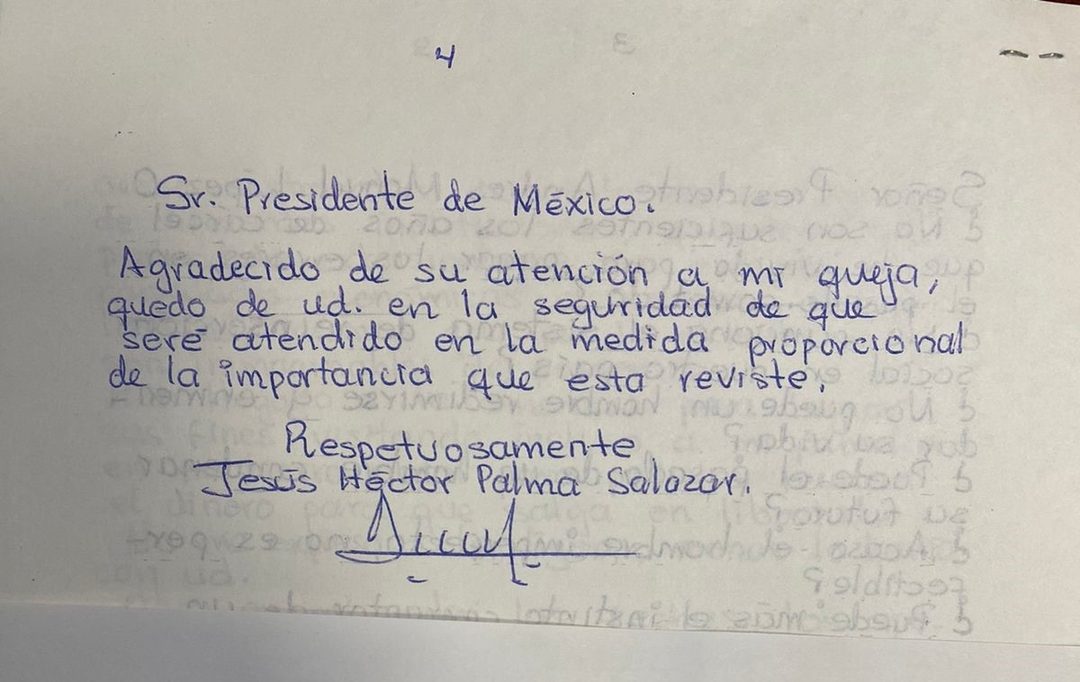 4
Sr. Presidente de México.
Agradecido de su atención a mi queja,
quedo de ud. en la seguridad de que
seré atendido en la medida proporcional
de la importancia que esta reviste.
Respetuosamente
Jesús Héctor Palma Salazar.